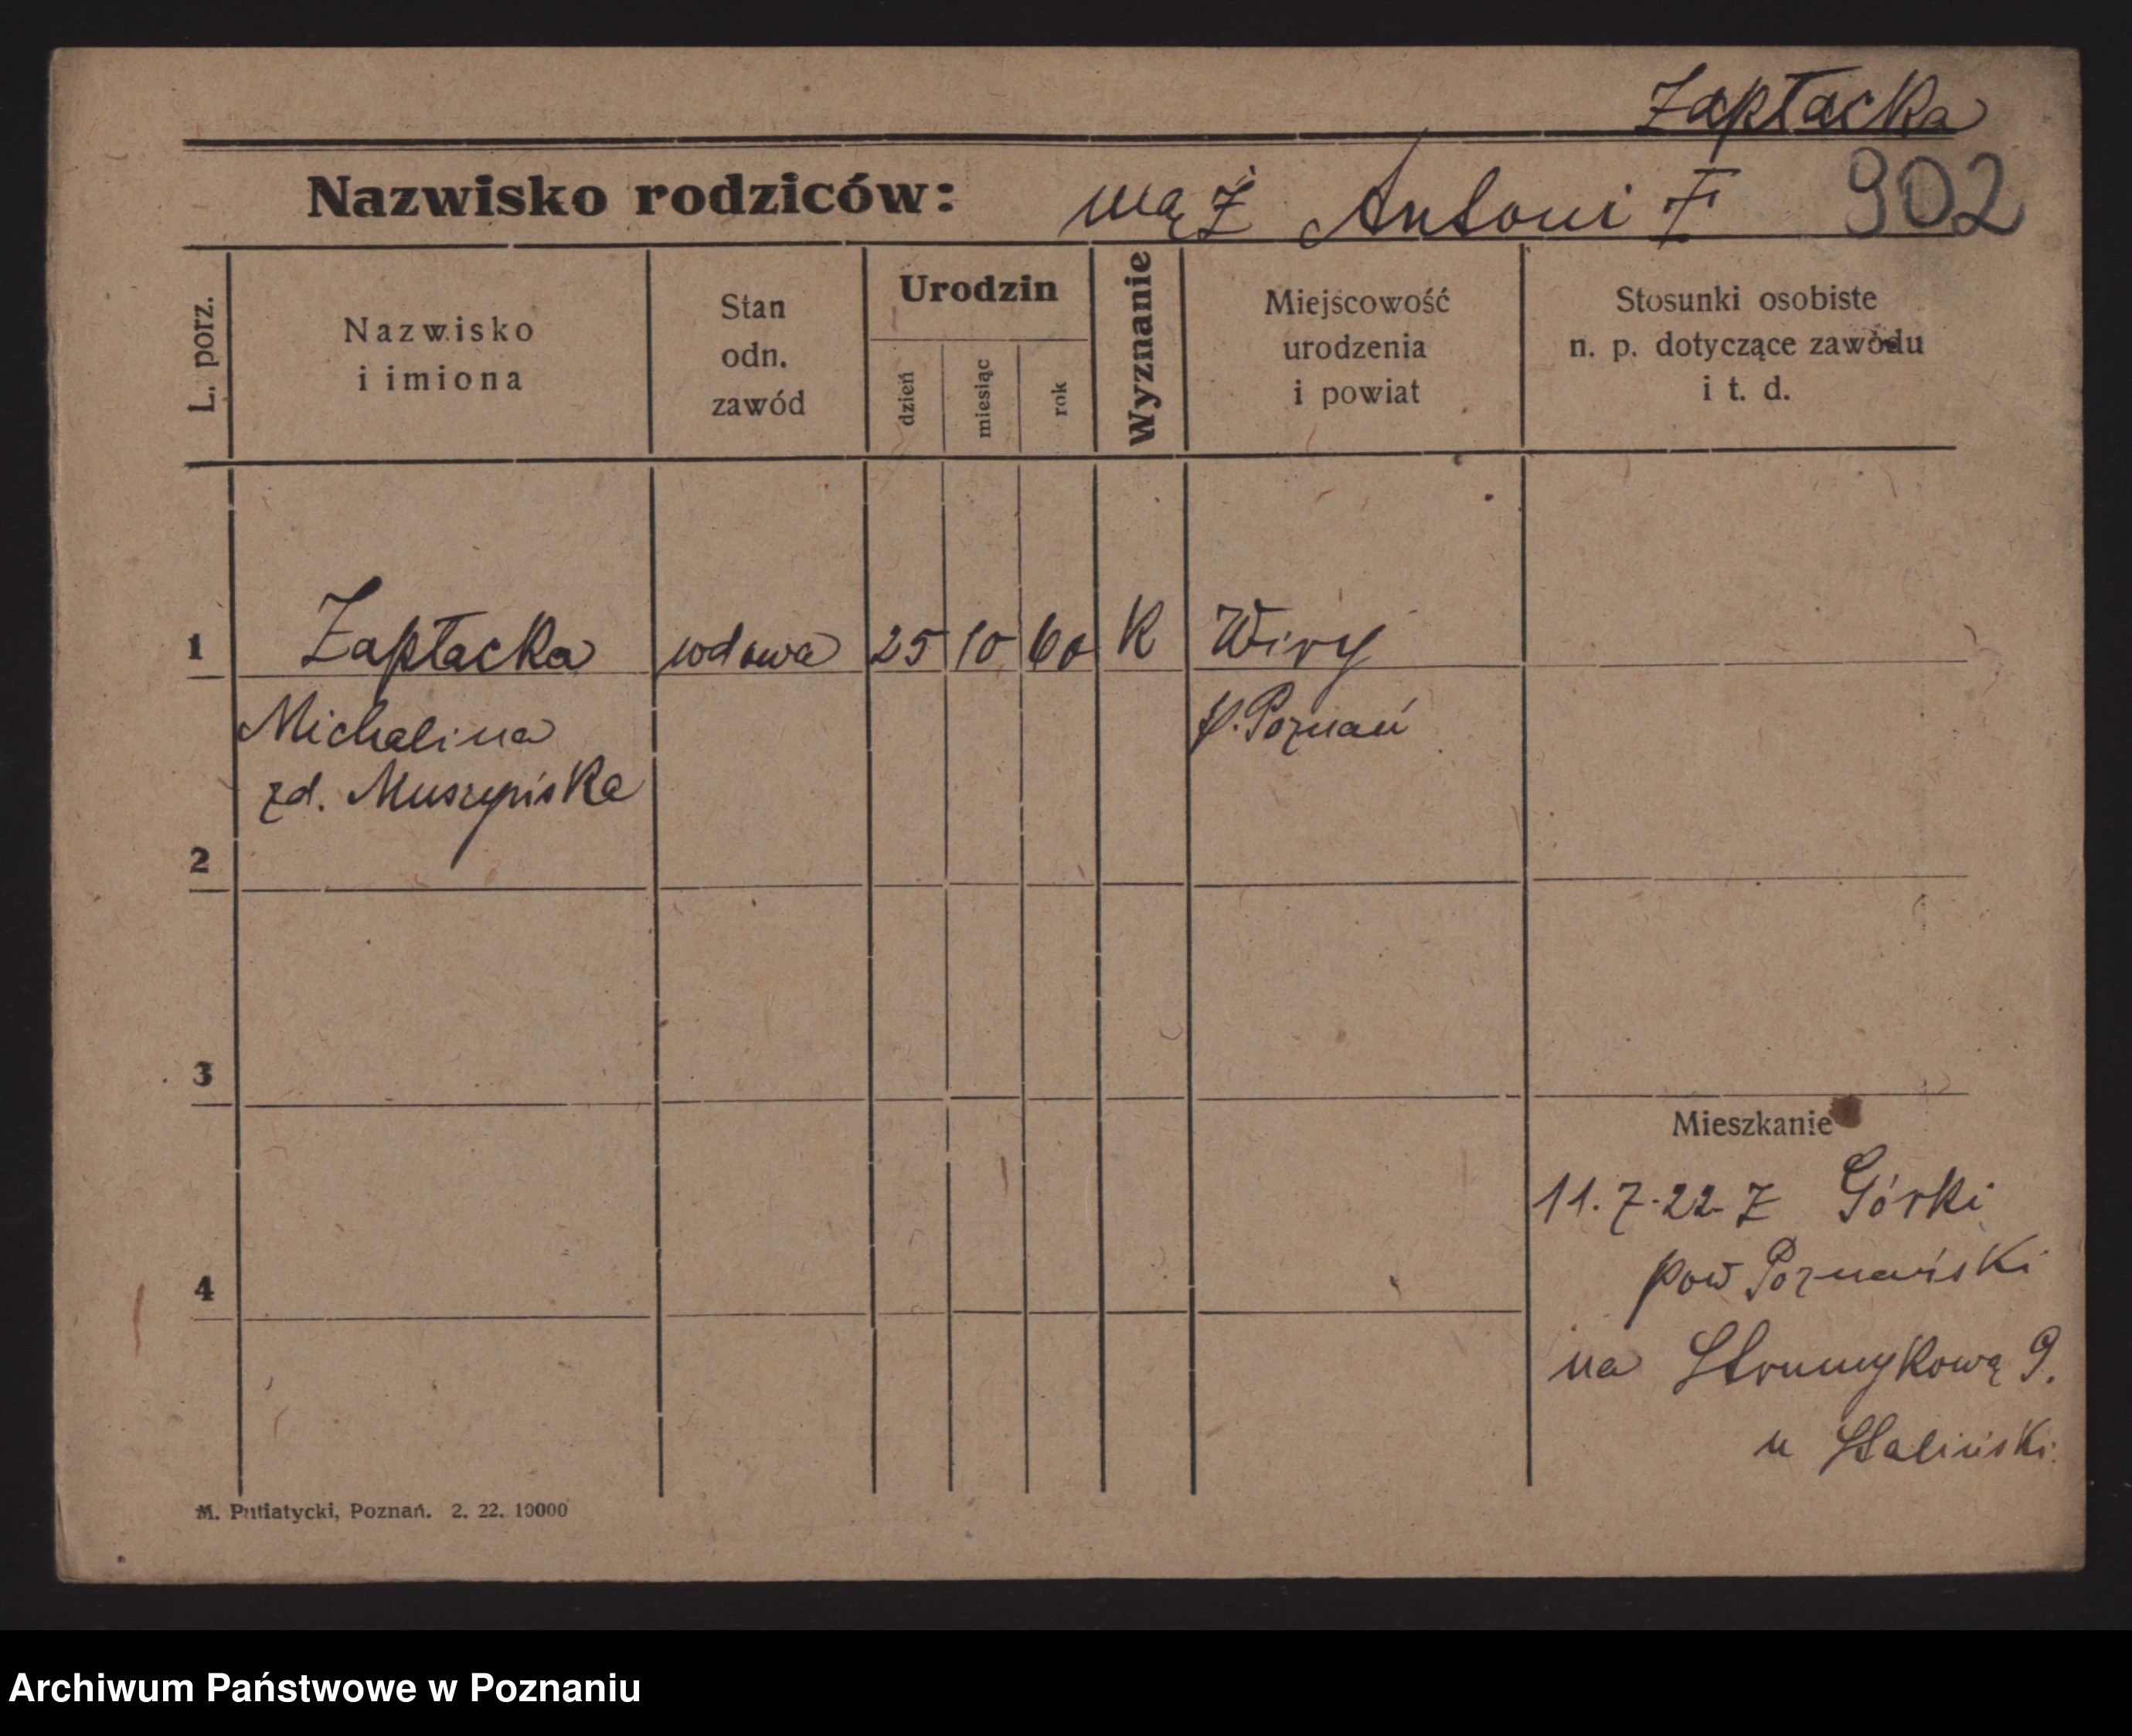 Zapłacka
Nazwisko rodziców: mąż Antoni 902
L. porz.
Nazwisko
i imiona
Stan
odn.
zawód
Urodzin
dzień
miesiąc
rok
Wyznanie
Miejscowość
urodzenia
i powiat
Stosunki osobiste
n. p. dotyczące zawodu
i t. d.
1 Zapłacka wdowa 25 10 60 K Wiry
Michalina p. Poznań
zd.
2
3
Mieszkanie
11.7.22 Z Górki
pow Poznański
4
na Strumykową 9.
u Staliński
M. Putiatycki, Poznań. 2. 22. 10000
Archiwum Państwowe w Poznaniu